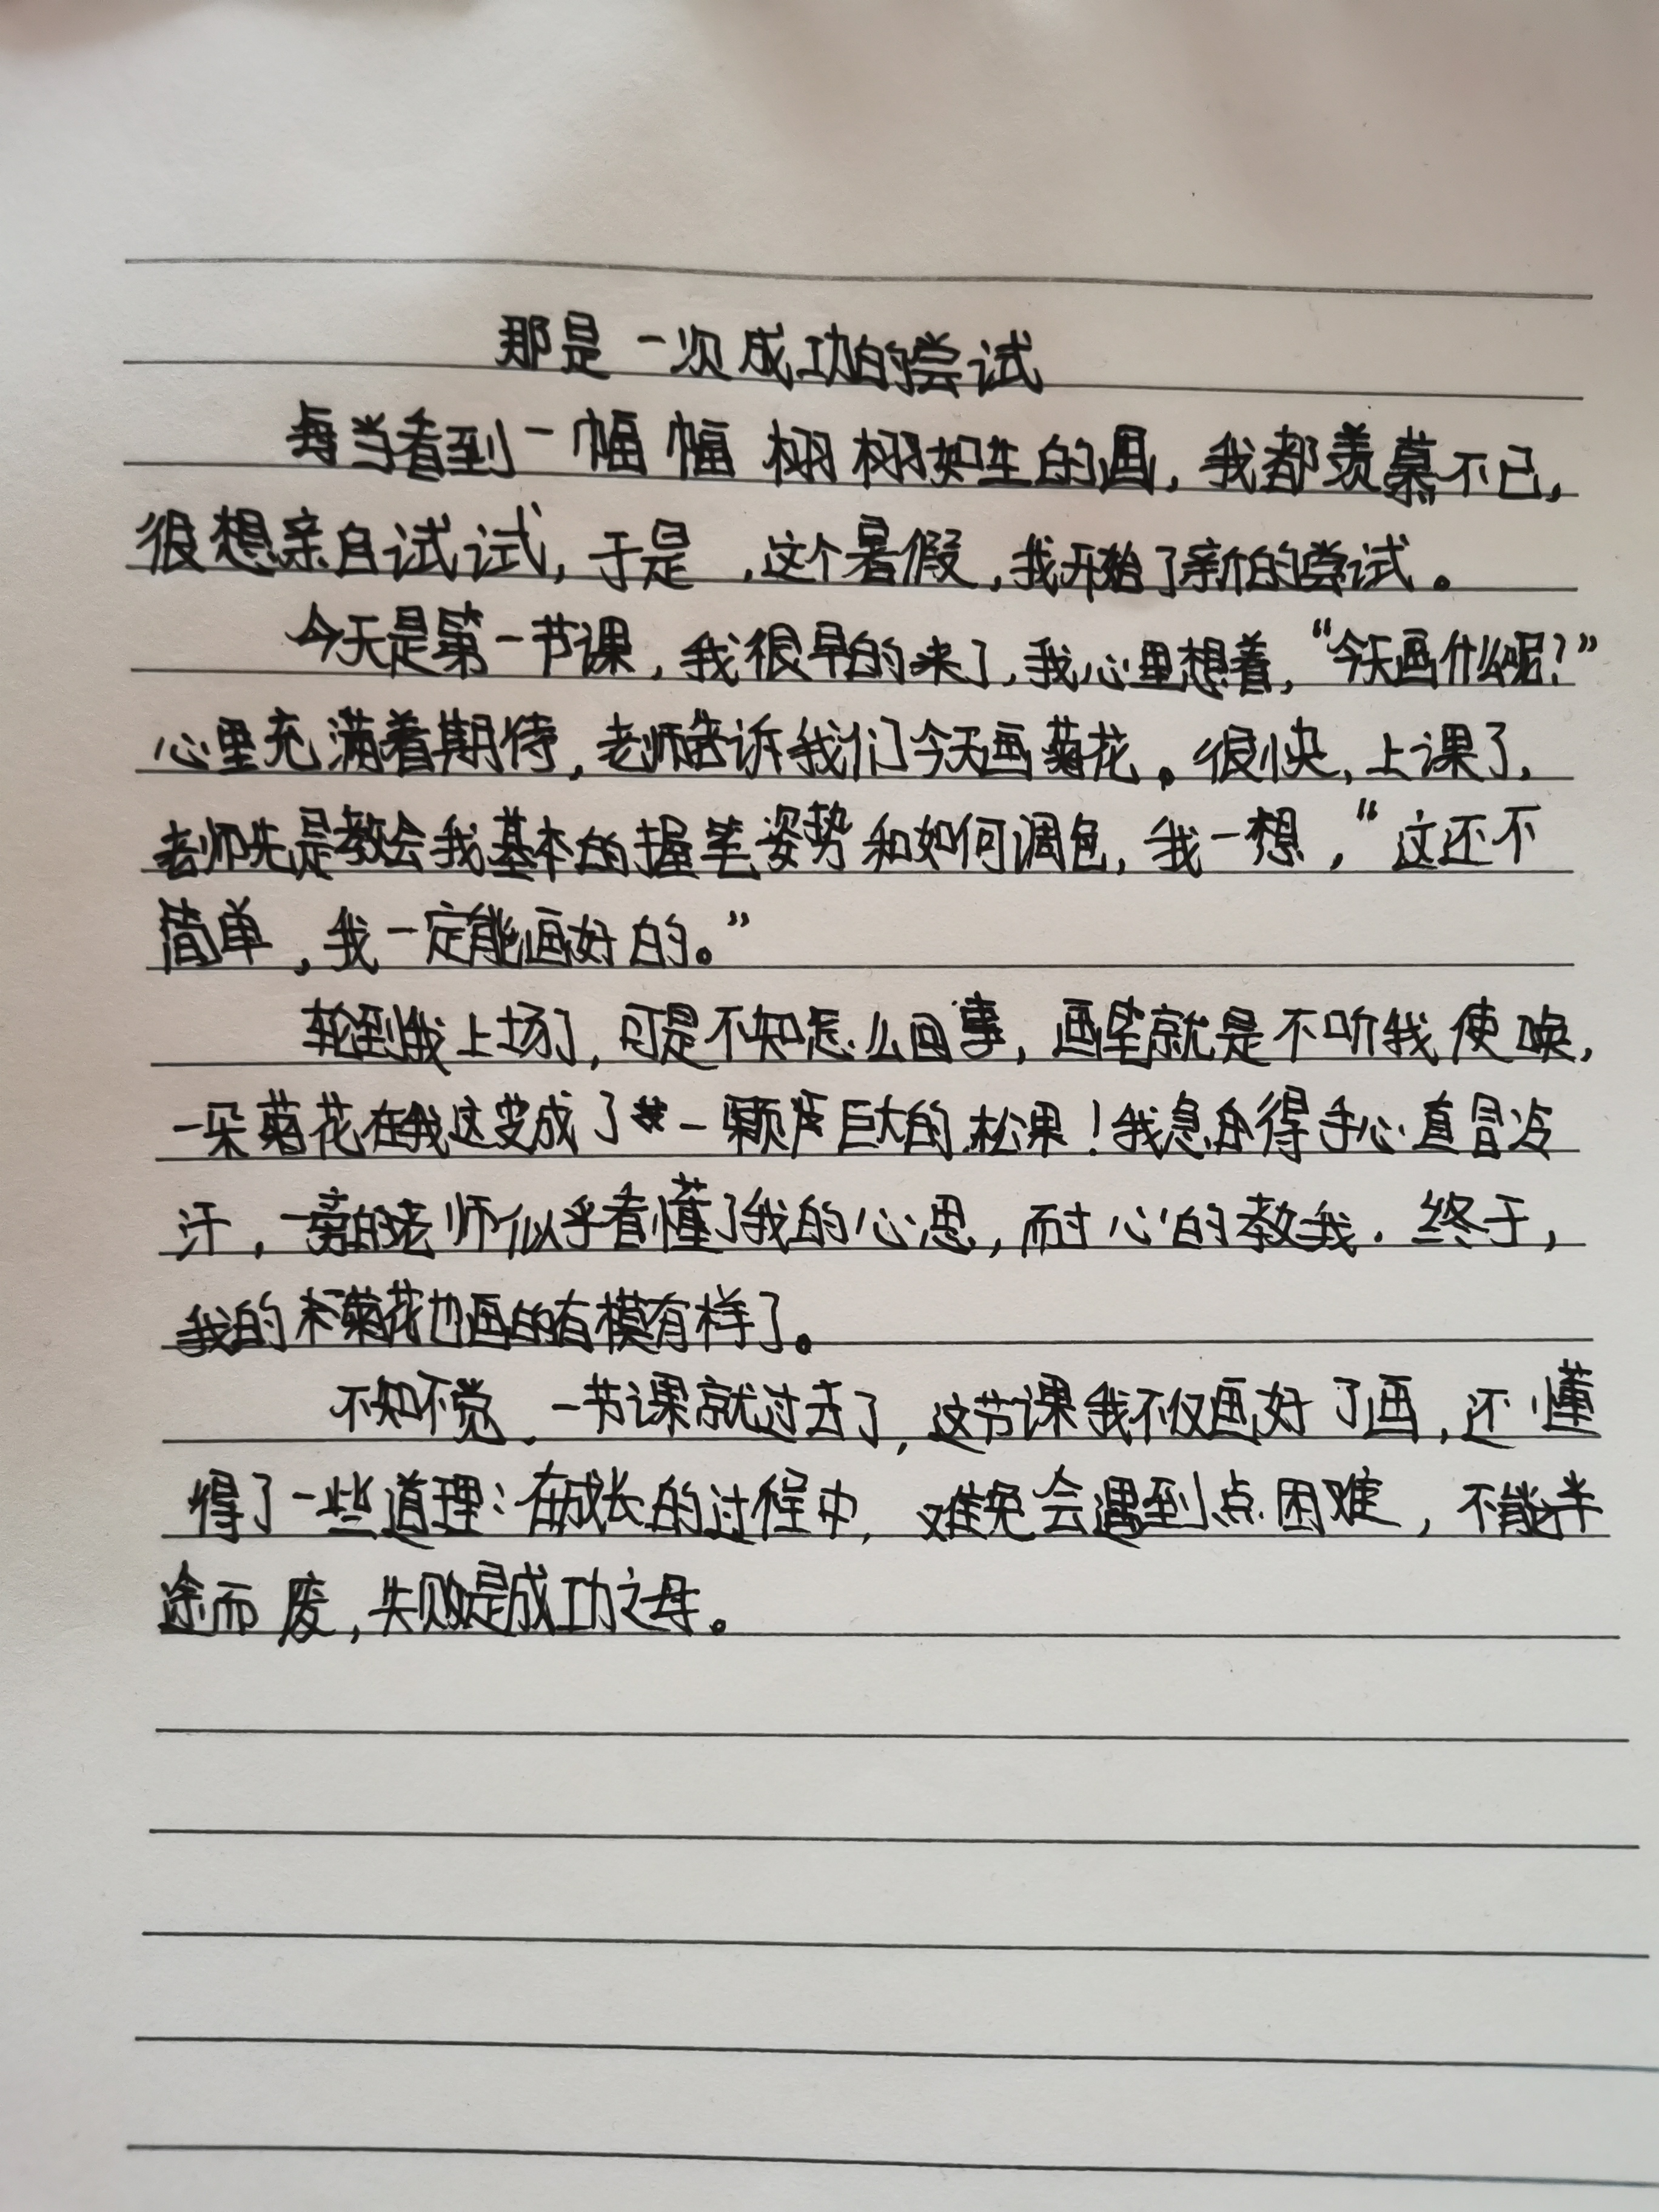 那是一次成功的尝试
每当看到一幅幅栩栩如生的画，我都羡慕不已，
很想亲自试试，于是，这个暑假，我开始了新的尝试。
今天是第一节课，我很早的来了，我心里想着，“今天画什么呢？”
心里充满着期待，老师告诉我们今天画菊花。很快，上课了，
老师先是教会我基本的握笔姿势和如何调色，我一想，“这还不
简单，我一定能画好的。”
轮到我上场了，可是不知怎么回事，画笔就是不听我使唤，
一朵菊花在我这变成了一颗巨大的松果！我急得手心直冒冷
汗，一旁的老师似乎看懂了我的心思，耐心的教我．终于，
我的菊花也画的有模有样了。
不知不觉，一节课就过去了，这节课我不仅画好了画，还懂
得了一些道理：在成长的过程中，难免会遇到点困难，不能半
途而废，失败是成功之母。